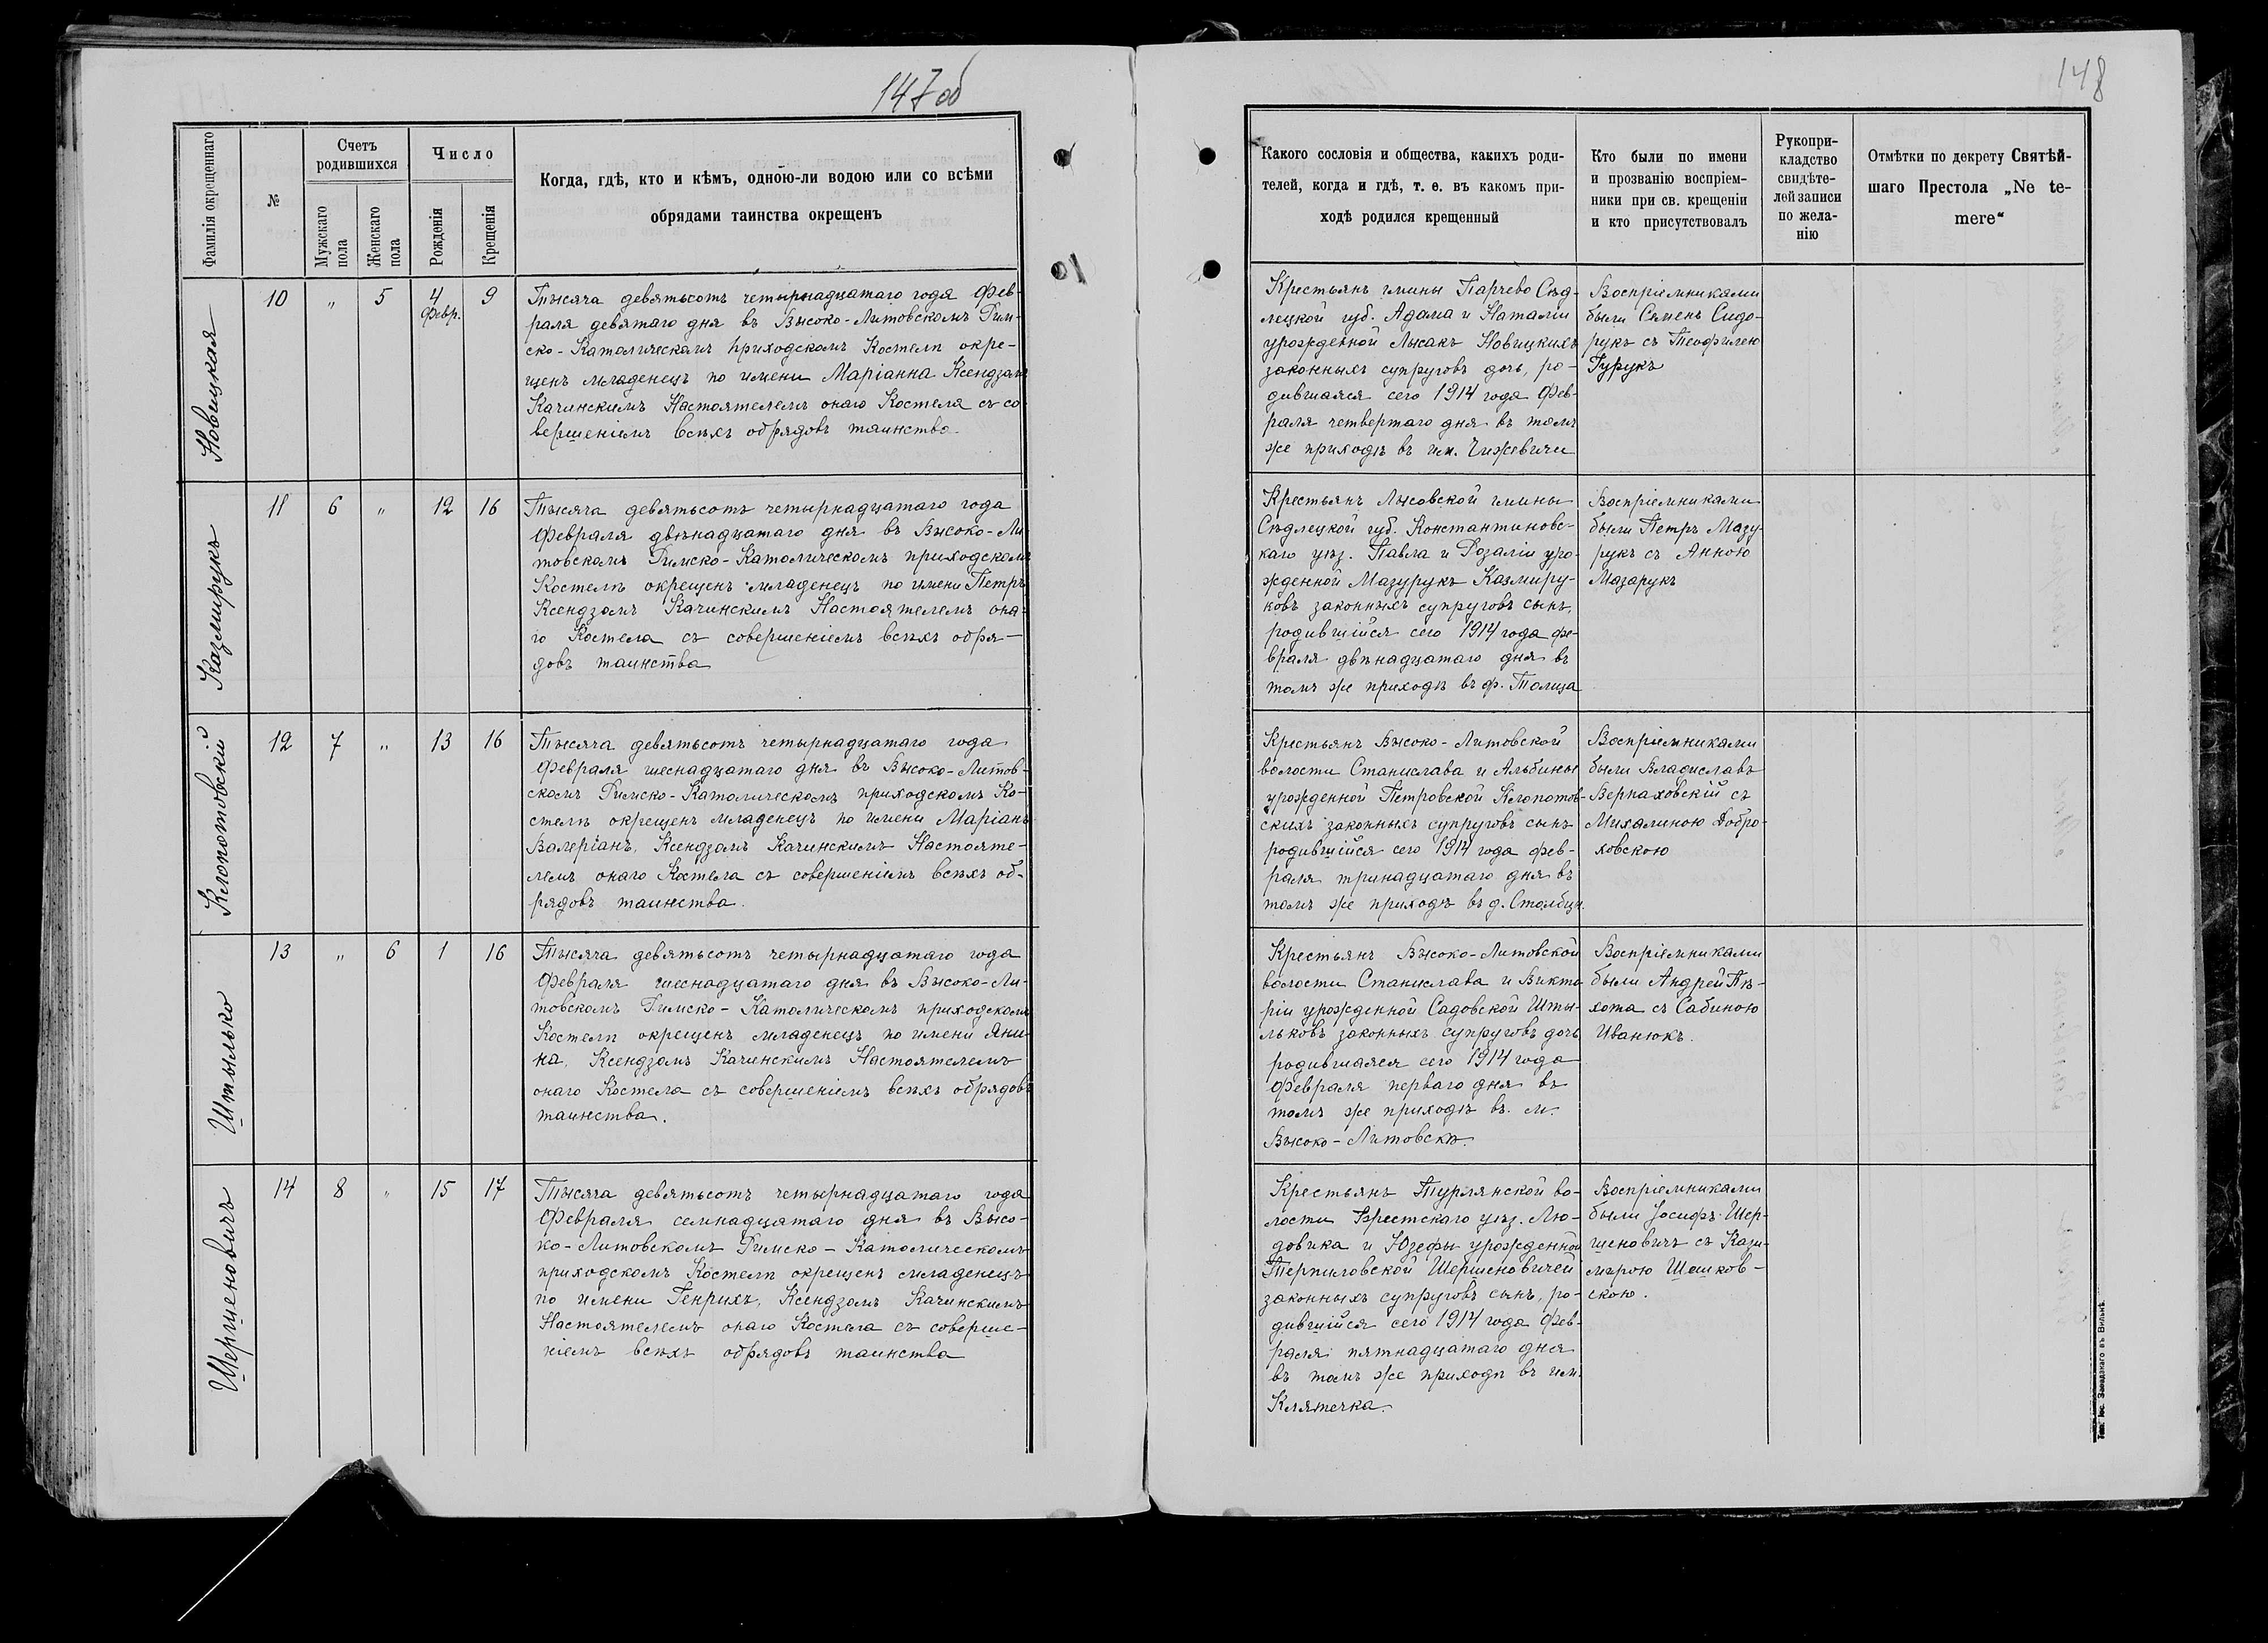 147об
Фамилія окрещеннаго
№
Счетъ
родившихся
Мужскаго
пола
Женскаго
пола
Число
Рожденія
Крещенія
Когда, гдѣ, кто и кѣмъ, одною-ли водою или со всѣми
обрядами таинства окрещенъ
Новицкая
10 „ 5 4 9
Февр.
Тысяча девятьсотъ четырнадцатаго года Фев-
раля девятаго дня въ Высоко-Литовскомъ Рим-
ско-Католическомъ приходскомъ Костелѣ окре-
щенъ младенецъ по имени Маріанна Ксендзомъ
Качинскимъ Настоятелемъ онаго Костела съ со
вершеніемъ всѣхъ обрядовъ таинства
Казмирукъ
11 6 „ 12 16
Тысяча девятьсотъ четырнадцатаго года
Февраля двѣнадцатаго дня въ Высоко-Ли
товскомъ Римско-Католическомъ приходскомъ
Костелѣ окрещенъ младенецъ по имени Петръ
Ксендзомъ Качинскимъ Настоятелемъ она-
го Костела съ совершеніемъ всѣхъ обря-
довъ таинства
Клопотовскій
12 7 „ 13 16
Тысяча девятьсотъ четырнадцатаго года
Февраля шеснадцатаго дня въ Высоко-Литов-
скомъ Римско-Католическомъ приходскомъ Ко-
стелѣ окрещенъ младенецъ по имени Маріанъ
Валеріанъ, Ксендзомъ Качинскимъ Настояте-
лемъ онаго Костела съ совершеніемъ всѣхъ об-
рядовъ таинства.
Штылько
13 „ 6 1 16
Тысяча девятьсотъ четырнадцатаго года
Февраля шеснадцатаго дня въ Высоко-Ли-
товскомъ Римско-Католическомъ приходскомъ
Костелѣ окрещенъ младенецъ по имени Яни-
на, Ксендзомъ Качинскимъ Настоятелемъ
онаго Костела съ совершеніемъ всѣхъ обрядовъ
таинства.
Шершеновичъ
14 8 „ 15 17
Тысяча девятьсотъ четырнадцатаго года
Февраля семнадцатаго дня въ Высо-
ко-Литовскомъ Римско-Католическомъ
приходскомъ Костелѣ окрещенъ младенецъ
по имени Генрихъ, Ксендзомъ Качинскимъ
Настоятелемъ онаго Костела съ соверше-
ніемъ всѣхъ обрядовъ таинства
148
Какого сословія и общества, какихъ роди-
телей, когда и гдѣ, т. е. въ какомъ при-
ходѣ родился крещенный
Кто были по имени
и прозванію воспріем-
ники при св. крещеніи
и кто присутствовалъ
Рукопри-
кладство
свидѣте-
лей записи
по жела-
нію
Отмѣтки по декрету Святѣй-
шаго Престола „Ne te-
mere“
Крестьянъ гмины Парчево Сѣд-
лецкой губ. Адама и Наталіи
урожденной Лысакъ Новицкихъ
законныхъ супруговъ дочь, ро-
дившаяся сего 1914 года Фев-
раля четвертаго дня въ томъ
же приходѣ въ им. Чижевичи
Воспріемниками
были Семенъ Сидо-
рукъ съ Теофилею
Гурукъ
Крестьянъ Лысовской гмины
Сѣдлецкой губ. Константиновс-
каго уѣз. Павла и Розаліи уро-
жденной Мазурукъ Казмиру-
ковъ законныхъ супруговъ сынъ,
родившійся сего 1914 года фе-
враля двѣнадцатаго дня въ
томъ же приходѣ въ ф. Толица
Воспріемниками
были Петръ Мазу-
рукъ съ Анною
Мазарукъ
Крестьянъ Высоко-Литовской
волости Станислава и Альбины
урожденной Петровской Клопотов-
скихъ законныхъ супруговъ сынъ
родившійся сего 1914 года фев-
раля тринадцатаго дня въ
томъ же приходѣ въ д. Столбцы.
Воспріемниками
были Владиславъ
Верпаховскій съ
Михалиною Добро-
ховскою
Крестьянъ Высоко-Литовской
волости Станислава и Викто
ріи урожденной Садовской Шты-
льковъ законныхъ супруговъ дочь
родившаяся сего 1914 года
Февраля перваго дня въ
томъ же приходѣ въ м.
Высоко-Литовскѣ.
Воспріемниками
были Андрей Пѣ-
хота съ Сабиною
Иванюкъ.
Крестьянъ Турнянской во-
лости Брестскаго уѣз. Лю-
довика и Юзефы урожденной
Терпиловской Шершеновичей
законныхъ супруговъ сынъ, ро-
дившійся сего 1914 года Фев-
раля пятнадцатаго дня
въ томъ же приходѣ въ им.
Клятечка.
Воспріемниками
были Іосифъ Шер-
шеновичъ съ Кази-
мірою Шешков-
скою.
Тип. Іос. Завадзкаго въ Вильнѣ.